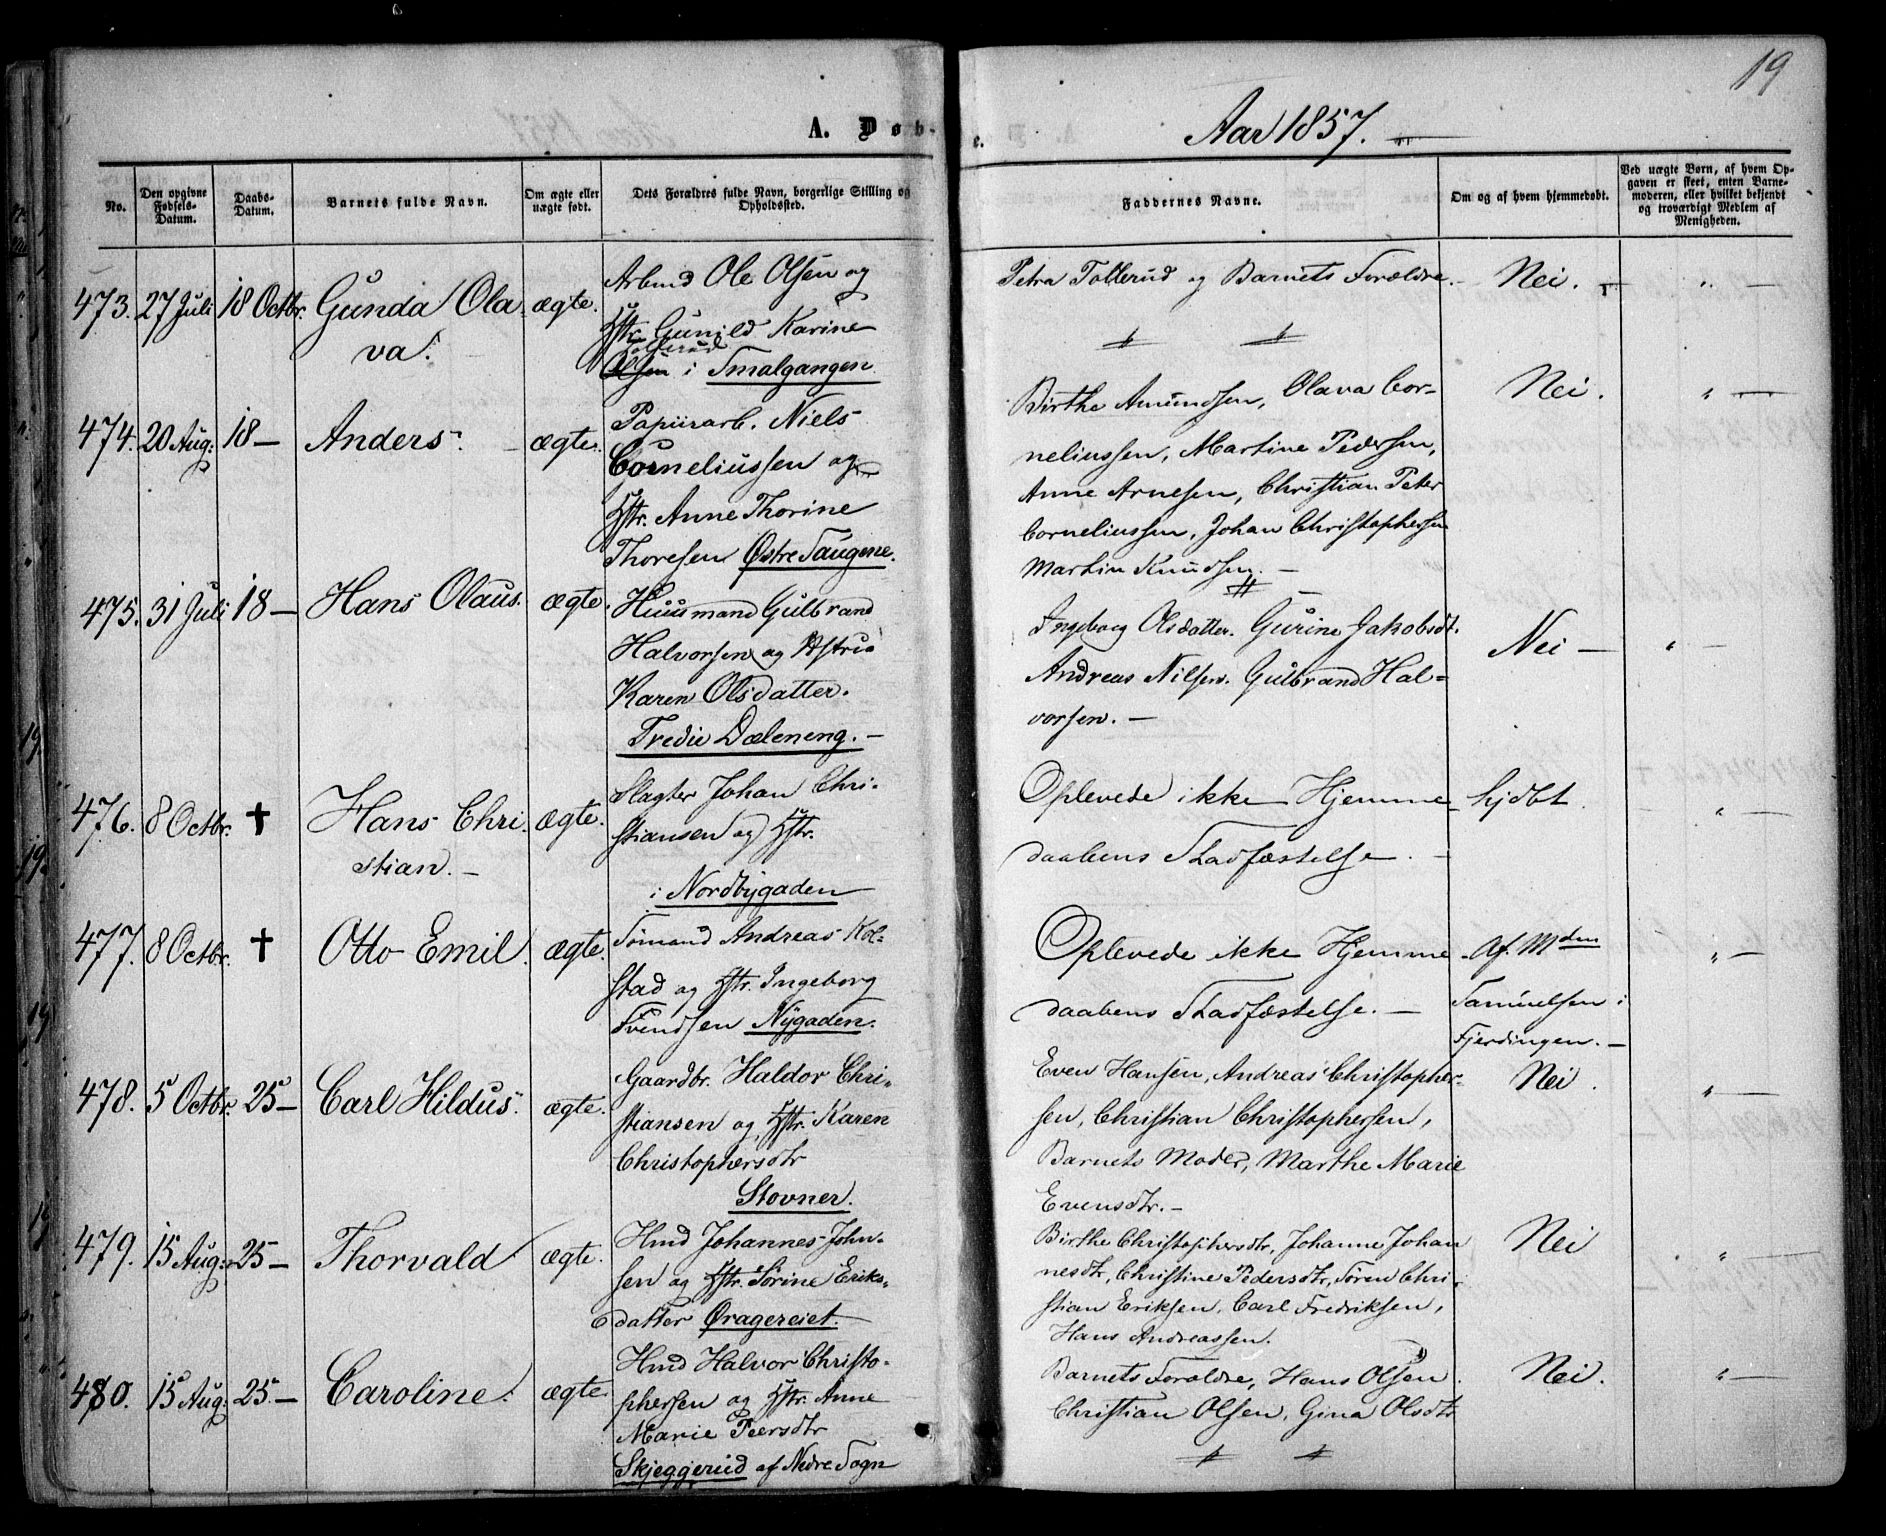 19
A. Døb-
e.
Aar 1857.
No.
Den opgivne Fødsels-Datum.
Daabs-Datum.
Barnets fulde Navn.
Om ægte eller uægte født.
Dets Forældres fulde Navn, borgerlige Stilling og Opholdssted.
Faddernes Navne.
Om og af hvem hjemmedøbt.
Ved uægte Børn, af hvem Op-
gaven er skeet, enten Barne-
moderen, eller hvilket bekjendt
og troværdigt Medlem af
Menigheden.
473. 27 Juli 18 Octbr. Gunda Ola-
va.
ægte.
Arbmd Ole Olsen og
Hstr. Gunild Karine
Tollerud
Olsen i Smalgangen
Petra Tollerud og Barnets Forældre.
Nei. " —
474. 20 Aug: 18 — Anders. ægte.
Papiirarb. Niels
Corneliussen og
Hstr. Anne Thorine
Thoresen Østre Saugene.
Birthe Amundsen, Olava Cor-
neliussen, Martine Pedersen,
Anne Arnesen, Christian Peter
Corneliussen, Johan Christophersen
Martin Knudsen. —
Nei. " —
475. 31 Juli 18 — Hans Olaus. ægte.
Huusmand Gulbrand
Halvorsen og Hstru
Karen Olsdatter.
Tredie Dæleneng. —
Ingeborg Olsdatter. Gurine Jakobsdt.
Andreas Nilsen. Gulbrand Hal-
vorsen. —
Nei — " —
476. 8 Octbr. † Hans Chri-
stian. —
ægte.
Slagter Johan Chri-
stiansen og Hstr.
i Nordbygaden
Oplevede ikke Hjemme-
daabens Stadfæstelse. —
hjdbt. " —
477. 8 Octbr. † Otto Emil. ægte.
Sømand Andreas Kol-
stad og Hstr. Ingeborg
Svendsen Nygaden.
Oplevede ikke Hjemme-
daabens Stadfæstelse. —
Af. Mden
Samuelsen i
Fjerdingen. —
" —
478. 5 Octbr. 25 — Carl Hildus. ægte.
Gaardbr. Haldor Chri-
stiansen og Hstr. Karen
Christophersdtr
Stovner.
Even Hansen, Andreas Christopher-
sen, Christian Christophersen,
Barnets Moder, Marthe Marie
Evensdtr. —
Nei. " —
479. 15 Aug: 25 — Thorvald ægte.
Hmd Johannes John-
sen og Hstr. Sørine Eriks-
datter Øragereiet.
Birthe Christophersdtr, Johanne Johan
nesdtr, Christine Pedersdtr, Søren Chri-
stian Eriksen, Carl Fredriksen,
Hans Andreassen.
Nei " —
480. 15 Aug: 25 — Caroline. ægte.
Hmd Halvor Christo-
phersen og Hstr. Anne
Marie Peersdtr
Skjeggerud af Nedre Sogn
Barnets Forældre, Hans Olsen.
Christian Olsen, Gina Olsdtr
Nei. " —